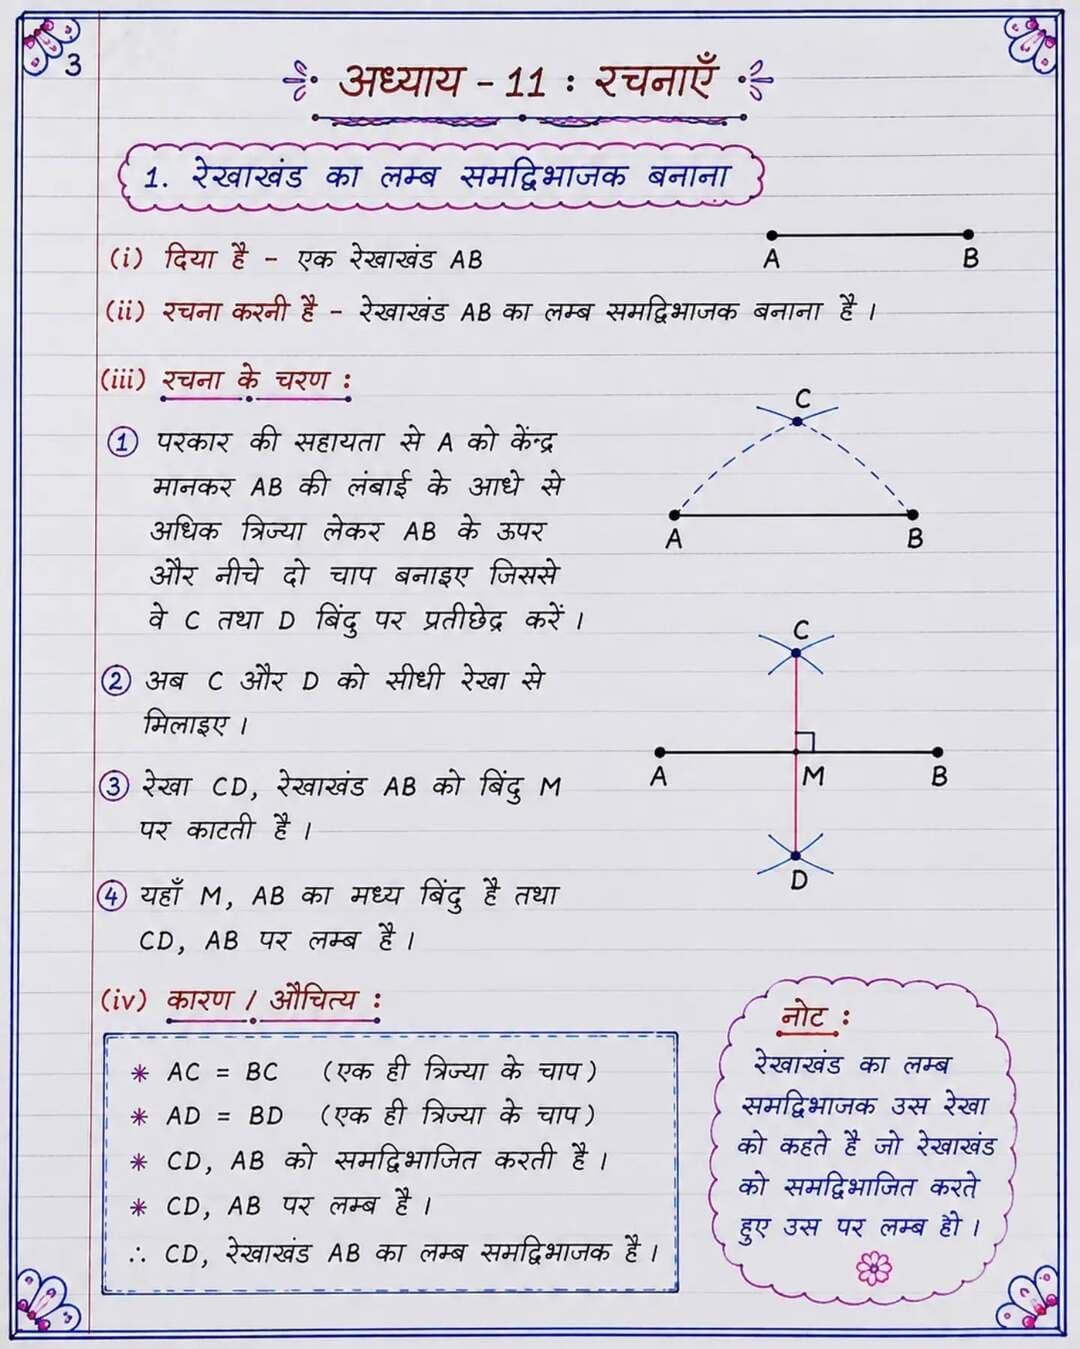 3
अध्याय - 11 : रचनाएँ
1. रेखाखंड का लम्ब समद्विभाजक बनाना
(i) दिया है - एक रेखाखंड AB
A B
(ii) रचना करनी है - रेखाखंड AB का लम्ब समद्विभाजक बनाना है ।
(iii) रचना के चरण :
① परकार की सहायता से A को केंन्द्र
मानकर AB की लंबाई के आधे से
अधिक त्रिज्या लेकर AB के ऊपर
और नीचे दो चाप बनाइए जिससे
वे C तथा D बिंदु पर प्रतीछेद्र करें ।
C
A B
② अब C और D को सीधी रेखा से
मिलाइए ।
③ रेखा CD, रेखाखंड AB को बिंदु M
पर काटती है ।
④ यहाँ M, AB का मध्य बिंदु है तथा
CD, AB पर लम्ब है ।
C
A M B
D
(iv) कारण / औचित्य :
* AC = BC (एक ही त्रिज्या के चाप)
* AD = BD (एक ही त्रिज्या के चाप)
* CD, AB को समद्विभाजित करती है ।
* CD, AB पर लम्ब है ।
∴ CD, रेखाखंड AB का लम्ब समद्विभाजक है ।
नोट :
रेखाखंड का लम्ब
समद्विभाजक उस रेखा
को कहते है जो रेखाखंड
को समद्विभाजित करते
हुए उस पर लम्ब हो ।